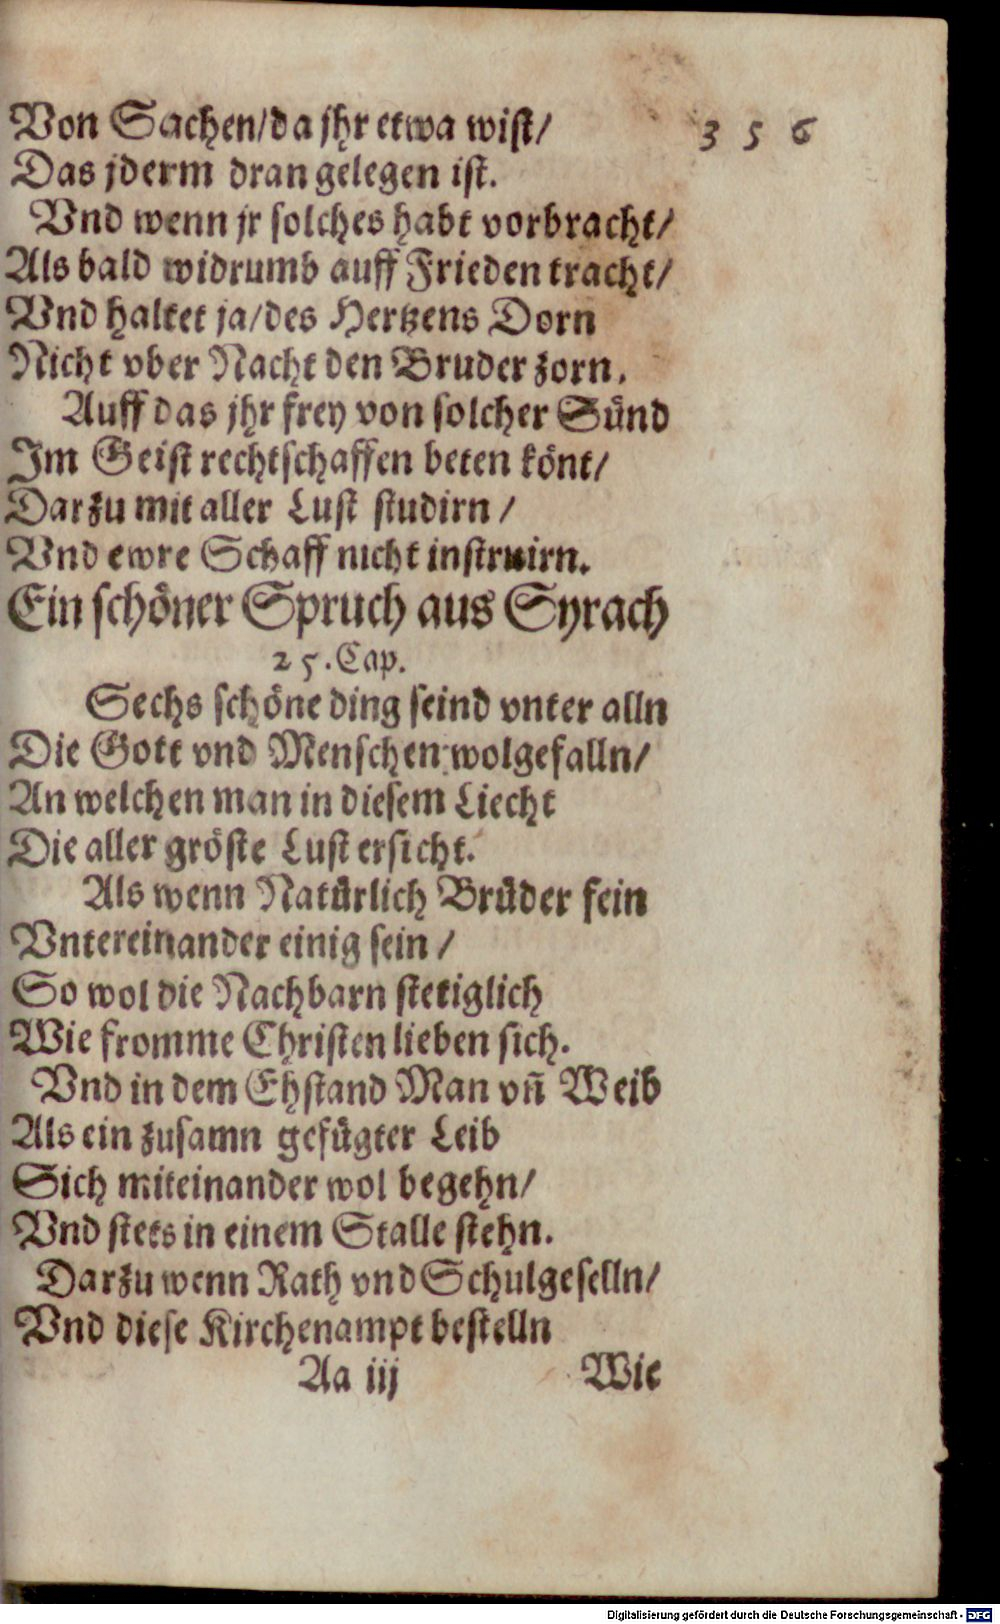 Von Sachen/da jhr etwa wist/ 356
Das jderm dran gelegen ist.
Vnd wenn jr solches habt vorbracht/
Als bald widrumb auff Frieden tracht/
Vnd haltet ja/des Hertzens Dorn
Nicht vber Nacht den Bruder zorn.
Auff das jhr frey von solcher Sünd
Im Geist rechtschaffen beten könt/
Darzu mit aller Lust studirn/
Vnd ewre Schaff nicht instruirn.
Ein schöner Spruch aus Syrach
25. Cap.
Sechs schöne ding seind vnter alln
Die Gott vnd Menschen wolgefalln/
An welchen man in diesem Liecht
Die aller gröste Lust ersicht.
Als wenn Natürlich Brüder fein
Vntereinander einig sein/
So wol die Nachbarn stetiglich
Wie fromme Christen lieben sich.
Vnd in dem Ehstand Man vñ Weib
Als ein zusamn gefügter Leib
Sich miteinander wol begehn/
Vnd stets in einem Stalle stehn.
Darzu wenn Rath vnd Schulgeselln/
Vnd diese Kirchenampt bestelln
Aa iij Wie
Digitalisierung gefördert durch die Deutsche Forschungsgemeinschaft - DFG